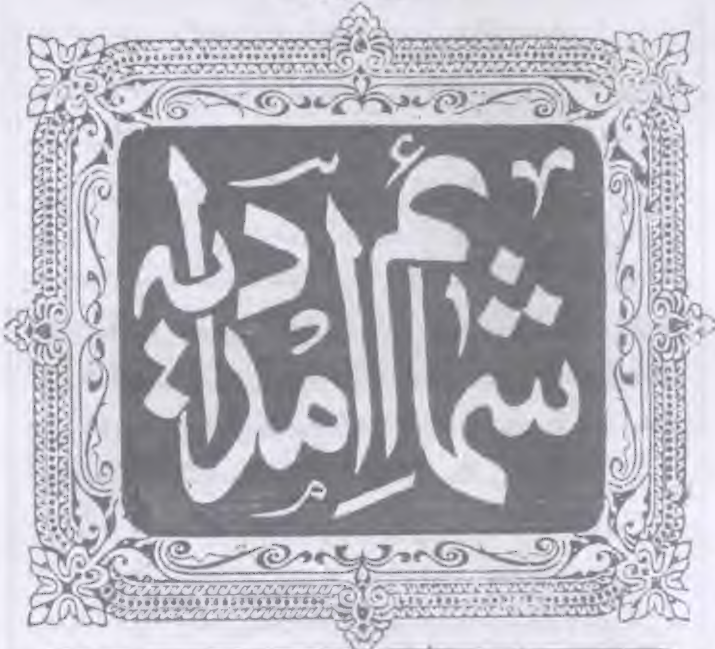 شمائم اِمدادیہ